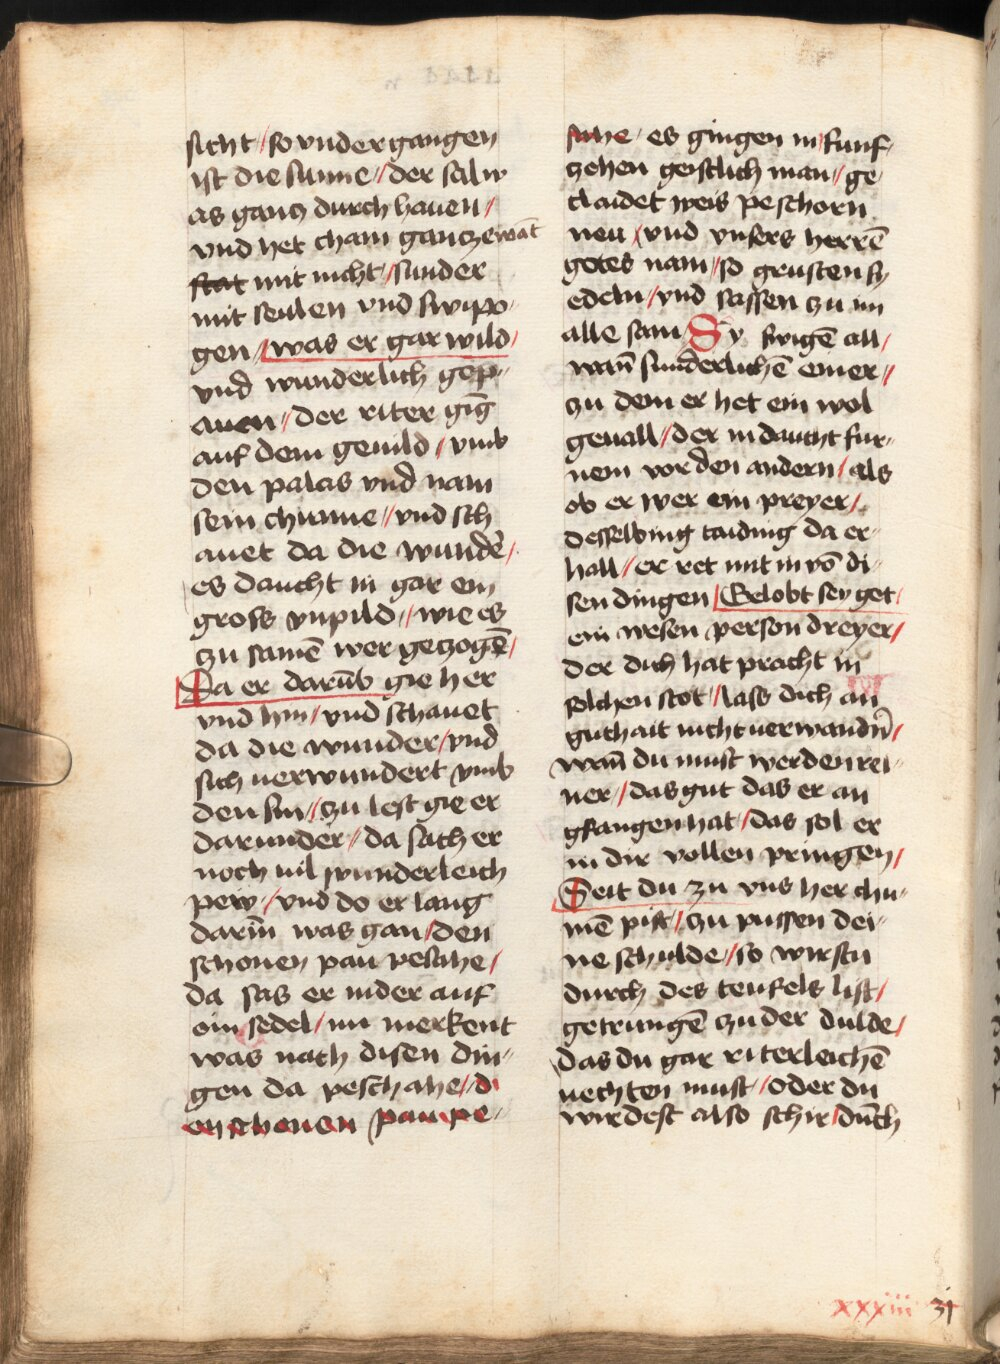 sicht / so vndergangen
ist die sunne // der sal w
as gancz durch hauen /
vnd het chain gancze wāt
stat mit nicht / sunder
mit seulen vnd swipo-
gen / was er gar wild /
vnd wunderlich gep-
auen // der riter gīg
auf dem geuild / vmb
den palas vnd nam
sein chunne // vnd sch
auet da die wunder /
es daucht in gar ein
gross vnpild // wie es
zu samē wer geczogē /
Da er darūb gie her
vnd hin / vnd schauet
da die wunder / vnd
sich uerwundert vmb
den sin // zu lest gie er
darunder // da sach er
noch uil wunderleich
pew / vnd do er lang
darin was gan / den
schonen pau pesahe /
da sas er nider auf
ein sedel / nu merkent
was nach disen din-
gen da peschahe / d
en schonen pau pe-
sahe / es gingen in funf-
zehen geistlich man // ge
claidet weis peschorn
neu / vnd vnsers herrē
gotes nam / so grusten sy
edeln / vnd sassen zu im
alle sam / Sy swigē all /
wan̄ sunderlichē einer //
zu dem er het ein wol
geuall / der in daucht fur-
nem vor den andern / als
ob er wer ein preyer /
desselbing taiding da er-
hall / er ret mit in vō di-
sen dingen / Gelobt sey got /
ein wesen person dreyer /
der dich hat pracht in
solchen stot / lass dich an
guthait nicht uerwandn̄ /
wan̄ du must werden rei-
ner / das gut das er an
gfangen hat / das sol er
in dir vollen pringen /
Seit du zu vns her chu-
mē pist / zu pussen dei-
ne schulde // so wirstu
durch des teufels list /
getrungē zu der dulde /
das du gar riterleichē
uechten must / oder du
wirdest also schir / durch
xxxiii 31